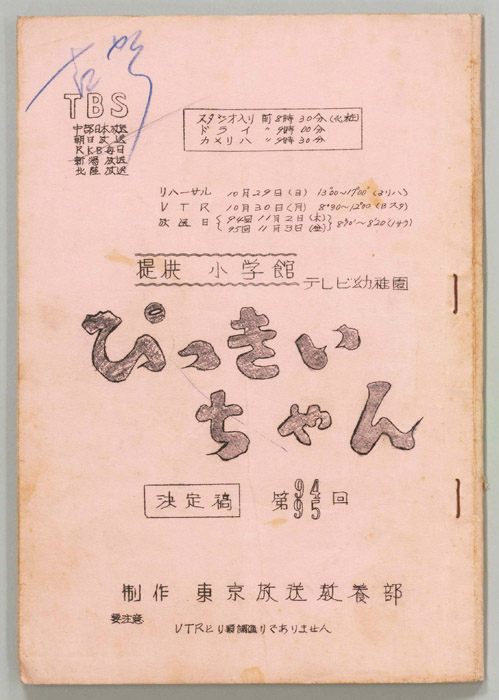 TBS
中部日本放送
朝日放送
RKB毎日
新潟放送
北陸放送
スタジオ入り 前8時30分(化粧)
ドライ 〃 9時00分
カメリハ 〃 9時30分
リハーサル 10月29日(日) 13°00~17°00 (ヨリハ)
VTR 10月30日(月) 8°30~12°00 (Bスタ)
放送日 {94回11月2日(木)
95回11月3日(金)} 8°10'~8°20'
提供 小学館
テレビ幼稚園
ぴっきい
ちゃん
決定稿
第94 95回
制作 東京放送教養部
要注意
VTRどり順通りでありません